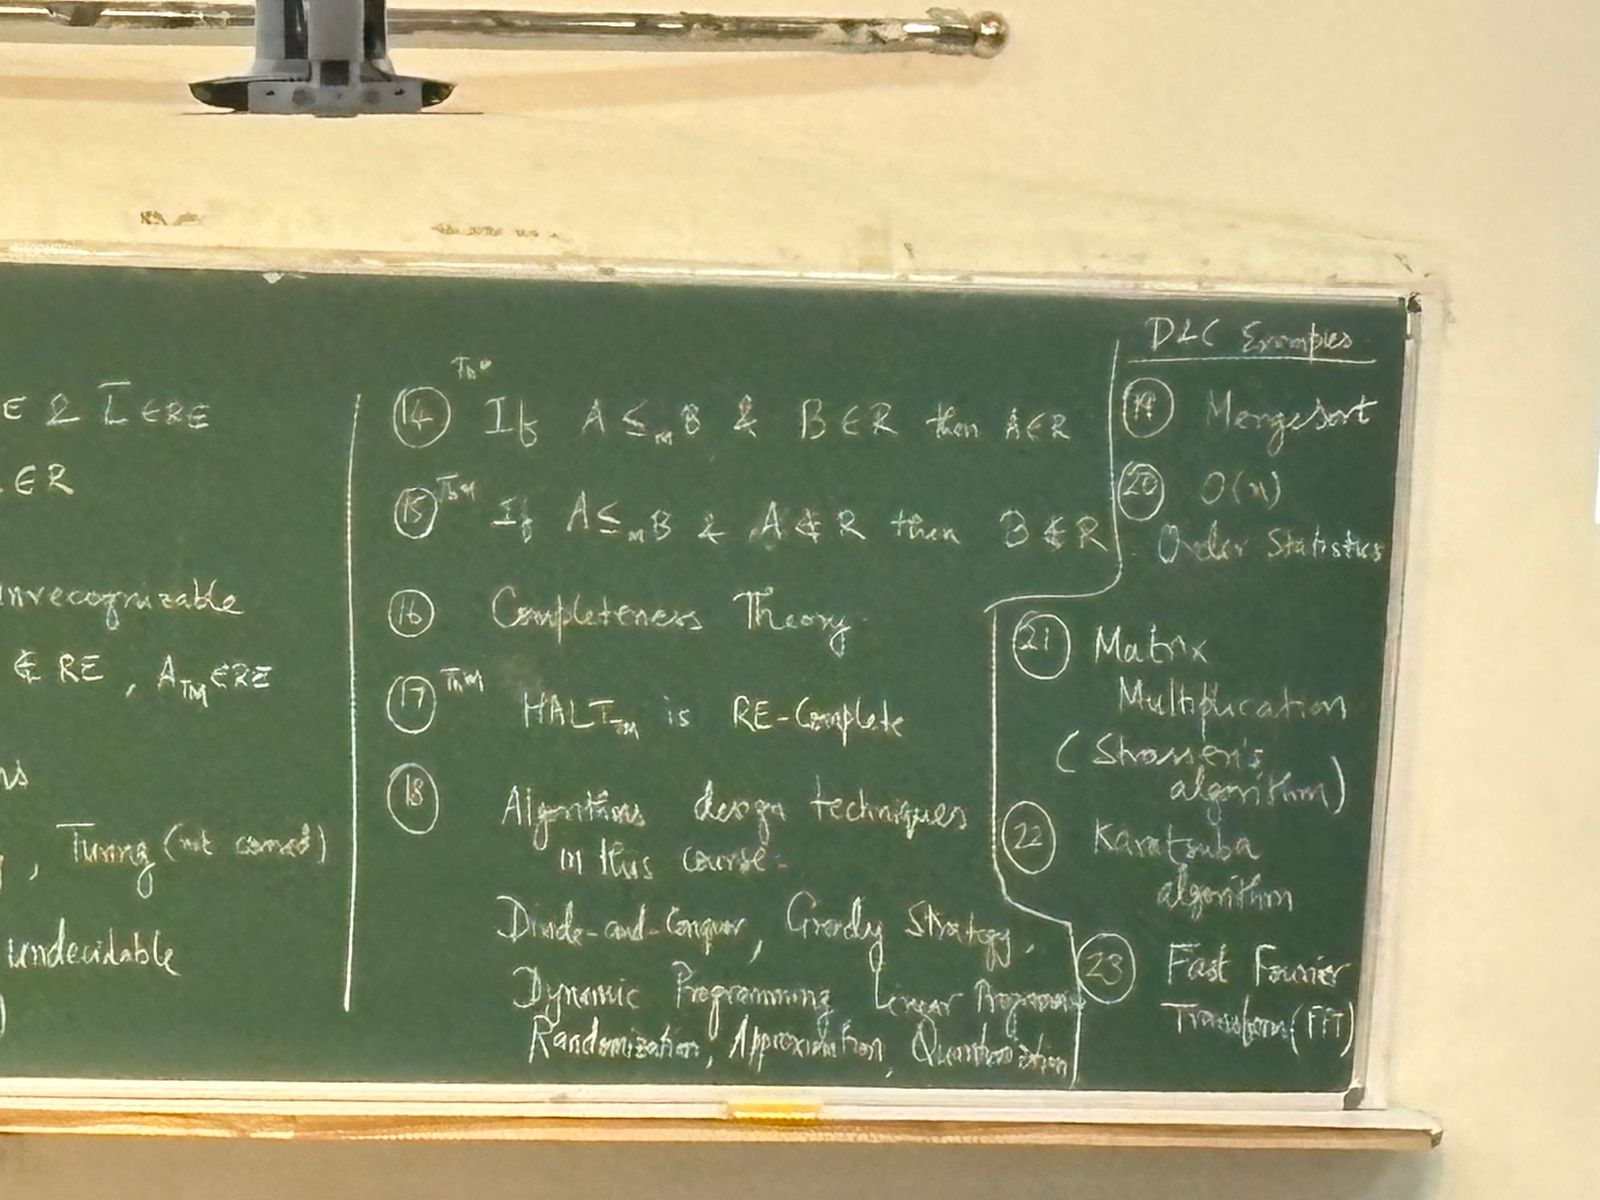 E & L̅ ∈ RE
∈ R
unrecognizable
∉ RE, A_TM ∈ RE
, Turing (not covered)
undecidable
)
Thm
(14) If A ≤_m B & B ∈ R then A ∈ R
(15) Thm If A ≤_m B & A ∉ R then B ∉ R
(16) Completeness Theory
(17) Thm HALT_TM is RE-Complete
(18) Algorithms design techniques
in this course:
Divide-and-Conquer, Greedy Strategy,
Dynamic Programming Linear Programming
Randomization, Approximation, Quantumization
D&C Examples
(19) Mergesort
(20) O(n)
Order Statistics
(21) Matrix
Multiplication
(Strassen's
algorithm)
(22) Karatsuba
algorithm
(23) Fast Fourier
Transform (FFT)